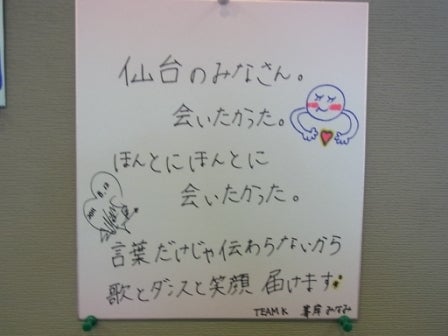 仙台のみなさん。
会いたかった。
ほんとにほんとに
会いたかった。
言葉だけじゃ伝わらないから
歌とダンスと笑顔 届けます
TEAM K 峯岸みなみ